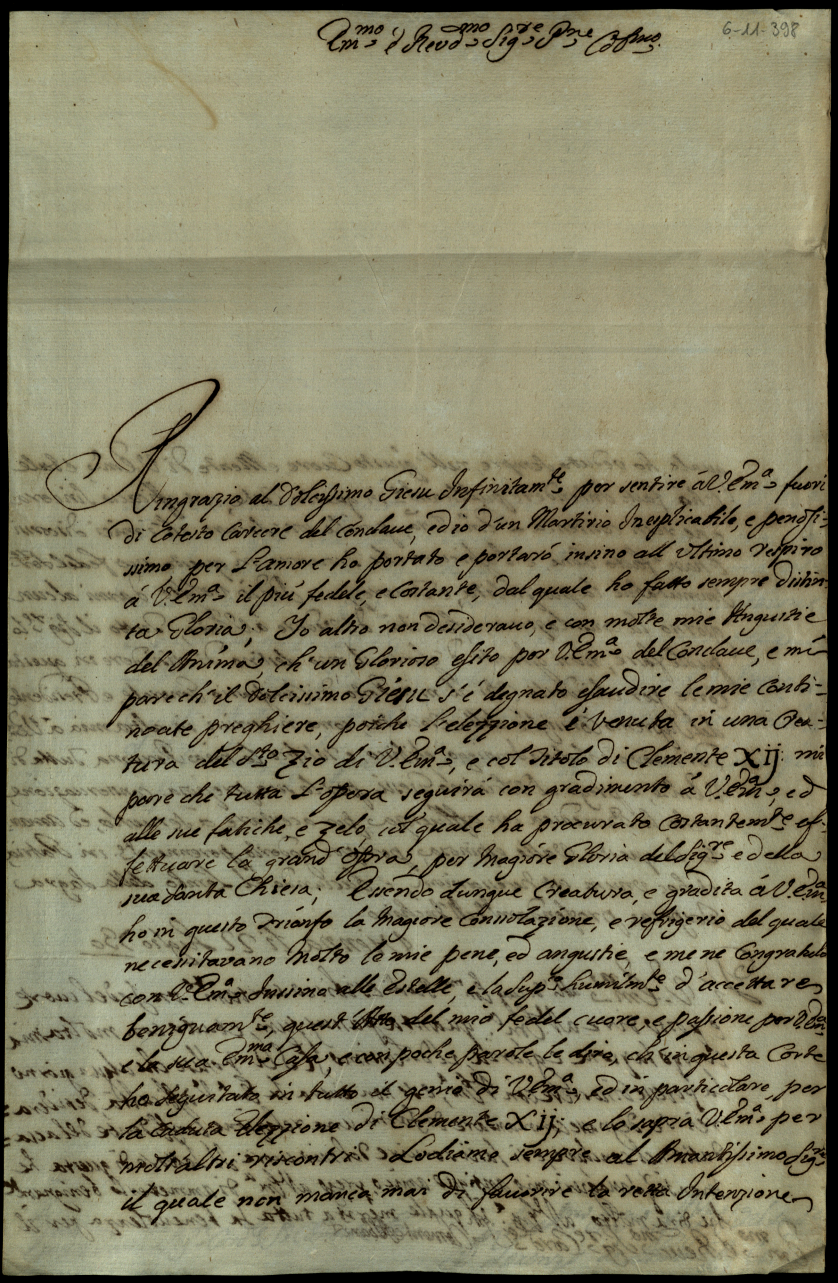 6-11-398
Em.mo é Reud.mo Sig.re P.ne
Ringrazio al Dolcissimo Giesu Infinitam.te per sentire á V. Em.a fuori
di Cotesto Carcere del Conclave, ed io d'un Martirio Inesplicabile, e penosi=
simo per L'amore ho portato e portaró insino all Ultimo respiro
á V. Em.a il piú fedele, e Costante, dal quale ho fatto sempre distin=
ta Gloria, Io altro non desiderauo, e con molte mie Angustie
del Anima, ch'un Glorioso esito per V. Em.a del Conclave, e mi
pare ch'il Dolcissimo Giesu s'é degnato esaudire le mie Conti=
nouate preghiere, poiche l'elezzione é venuta in una Crea=
tura del S.to Zio di V. Em.a, e col titolo di Clemente XIJ: mi
pare che tutta L'opera seguirá con gradimento á V. Em.a, ed
alle sue fatiche, e Zelo, col quale ha procurato Costantem.te ef=
fettuare la grand'opra, per Magiore Gloria del Sig.re e della
sua Santa Chiesa; Essendo dunque Creatura, e gradita á V. Em.a
ho in questo Trionfo la Magiore Consolazione, e refrigerio del quale
necessitavano Molto le mie pene, ed angustie, e me ne Congratulo
con V. Em.a Insino alle Estelle, e la Sup.co humilm.te d'accettare
benignam.te, quest' del mio fedel cuore, e passione per V. Em.a
e la sua Em.ma Casa, e con poche parole le diro, ch'in questa Corte
ho seguitato in tutto il genio di V. Em.a, ed in particolare, per
la Elezzione di Clemente XIJ; e lo sapra V. Em.a, per
molt'altri riscontri. Lodiamo sempre al Amantissimo Sig.re
il quale non manca mai di favorire la retta Intenzione